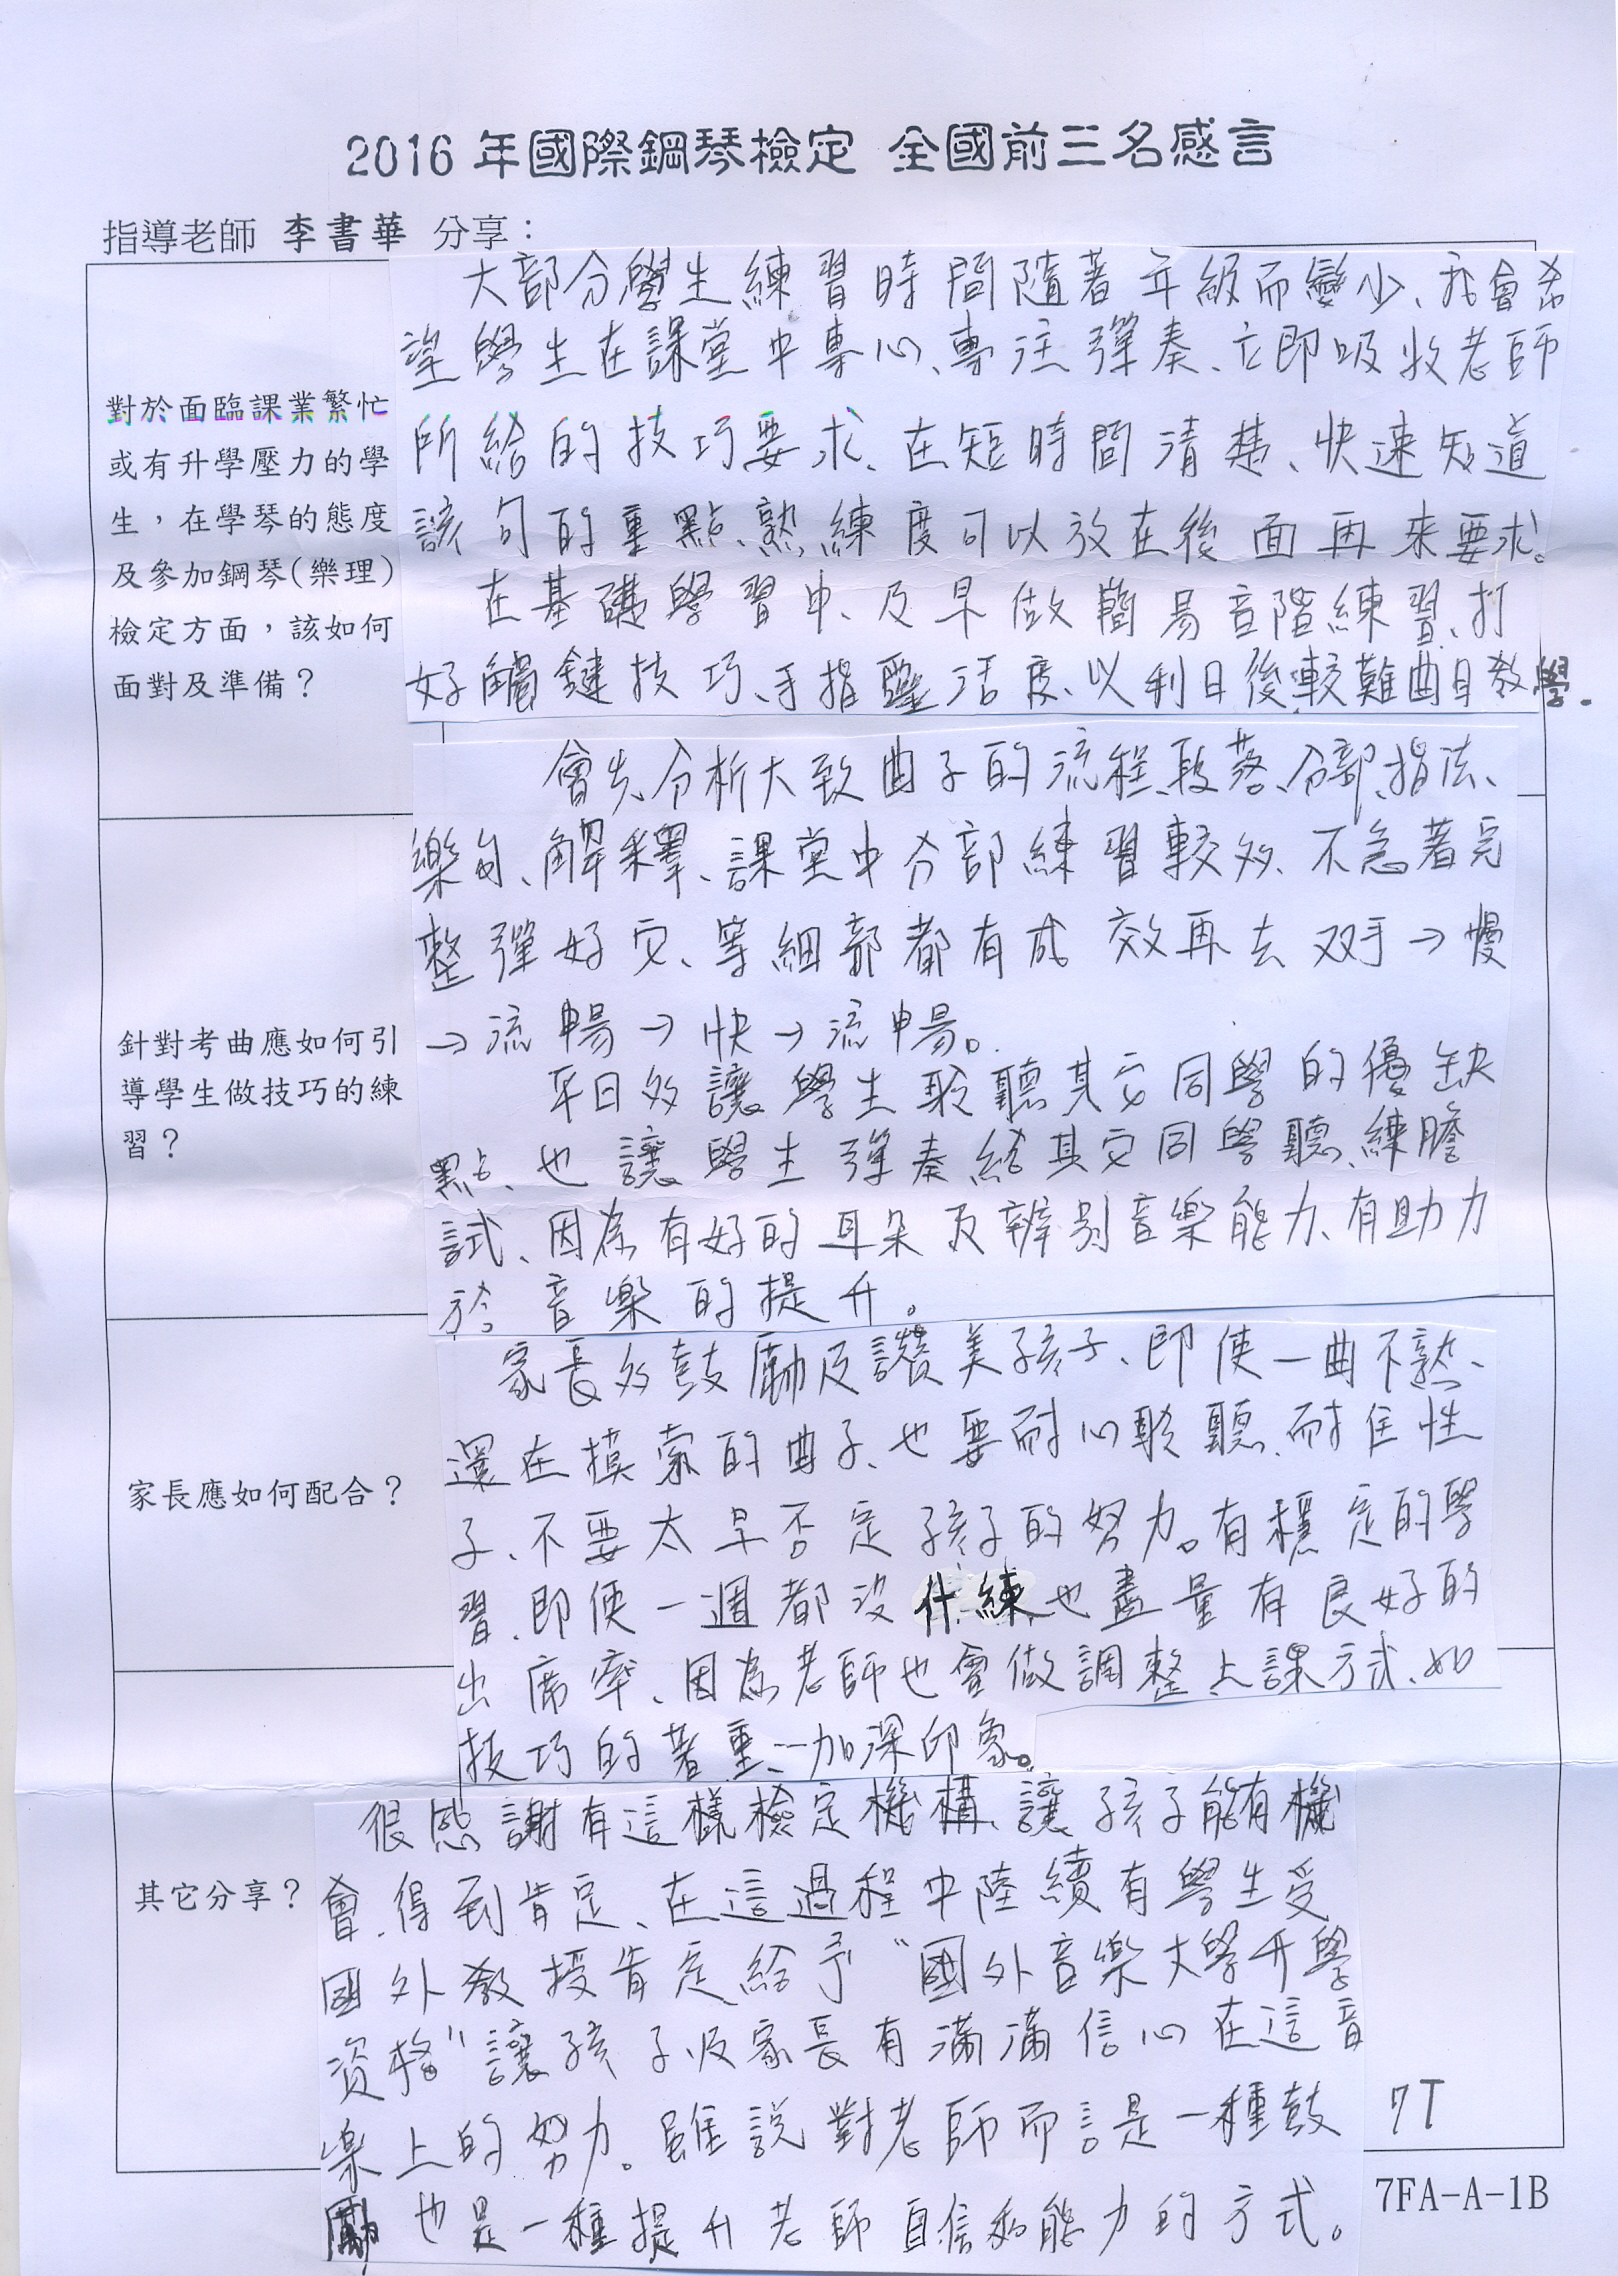 2016 年國際鋼琴檢定 全國前三名感言
指導老師 李書華 分享：
對於面臨課業繁忙
或有升學壓力的學
生，在學琴的態度
及參加鋼琴(樂理)
檢定方面，該如何
面對及準備？
大部分學生練習時間隨著年級而變少、我會希
望學生在課堂中專心、專注彈奏、立即吸收老師
所給的技巧要求、在短時間清楚、快速知道
該句的重點、熟練度可以放在後面再來要求。
在基礎學習中、及早做簡易音階練習、打
好觸鍵技巧、手指靈活度、以利日後較難曲目教學.
針對考曲應如何引
導學生做技巧的練
習？
會先分析大致曲子的流程、段落、分部、指法、
樂句、解釋、課堂中分部練習較多、不急著完
整彈好它、等細部都有成效再去双手→慢
→流暢→快→流暢。
平日多讓學生聆聽其它同學的優缺
點、也讓學生彈奏給其它同學聽、練膽
試、因為有好的耳朵及辨別音樂能力、有助力
於音樂的提升。
家長應如何配合？
家長多鼓勵及讚美孩子、即使一曲不熟、
還在摸索的曲子、也要耐心聆聽、耐住性
子、不要太早否定孩子的努力。有穩定的學
習、即使一週都沒什練也盡量有良好的
出席率、因為老師也會做調整上課方式、如
技巧的著重…加深印象。
其它分享？
很感謝有這樣檢定機構、讓孩子能有機
會得到肯定、在這過程中陸續有學生受
國外教授肯定給予"國外音樂大學升學
資格"讓孩子及家長有滿滿信心在這音
樂上的努力。雖說對老師而言是一種鼓
勵也是一種提升老師自信和能力的方式。
7T
7FA-A-1B